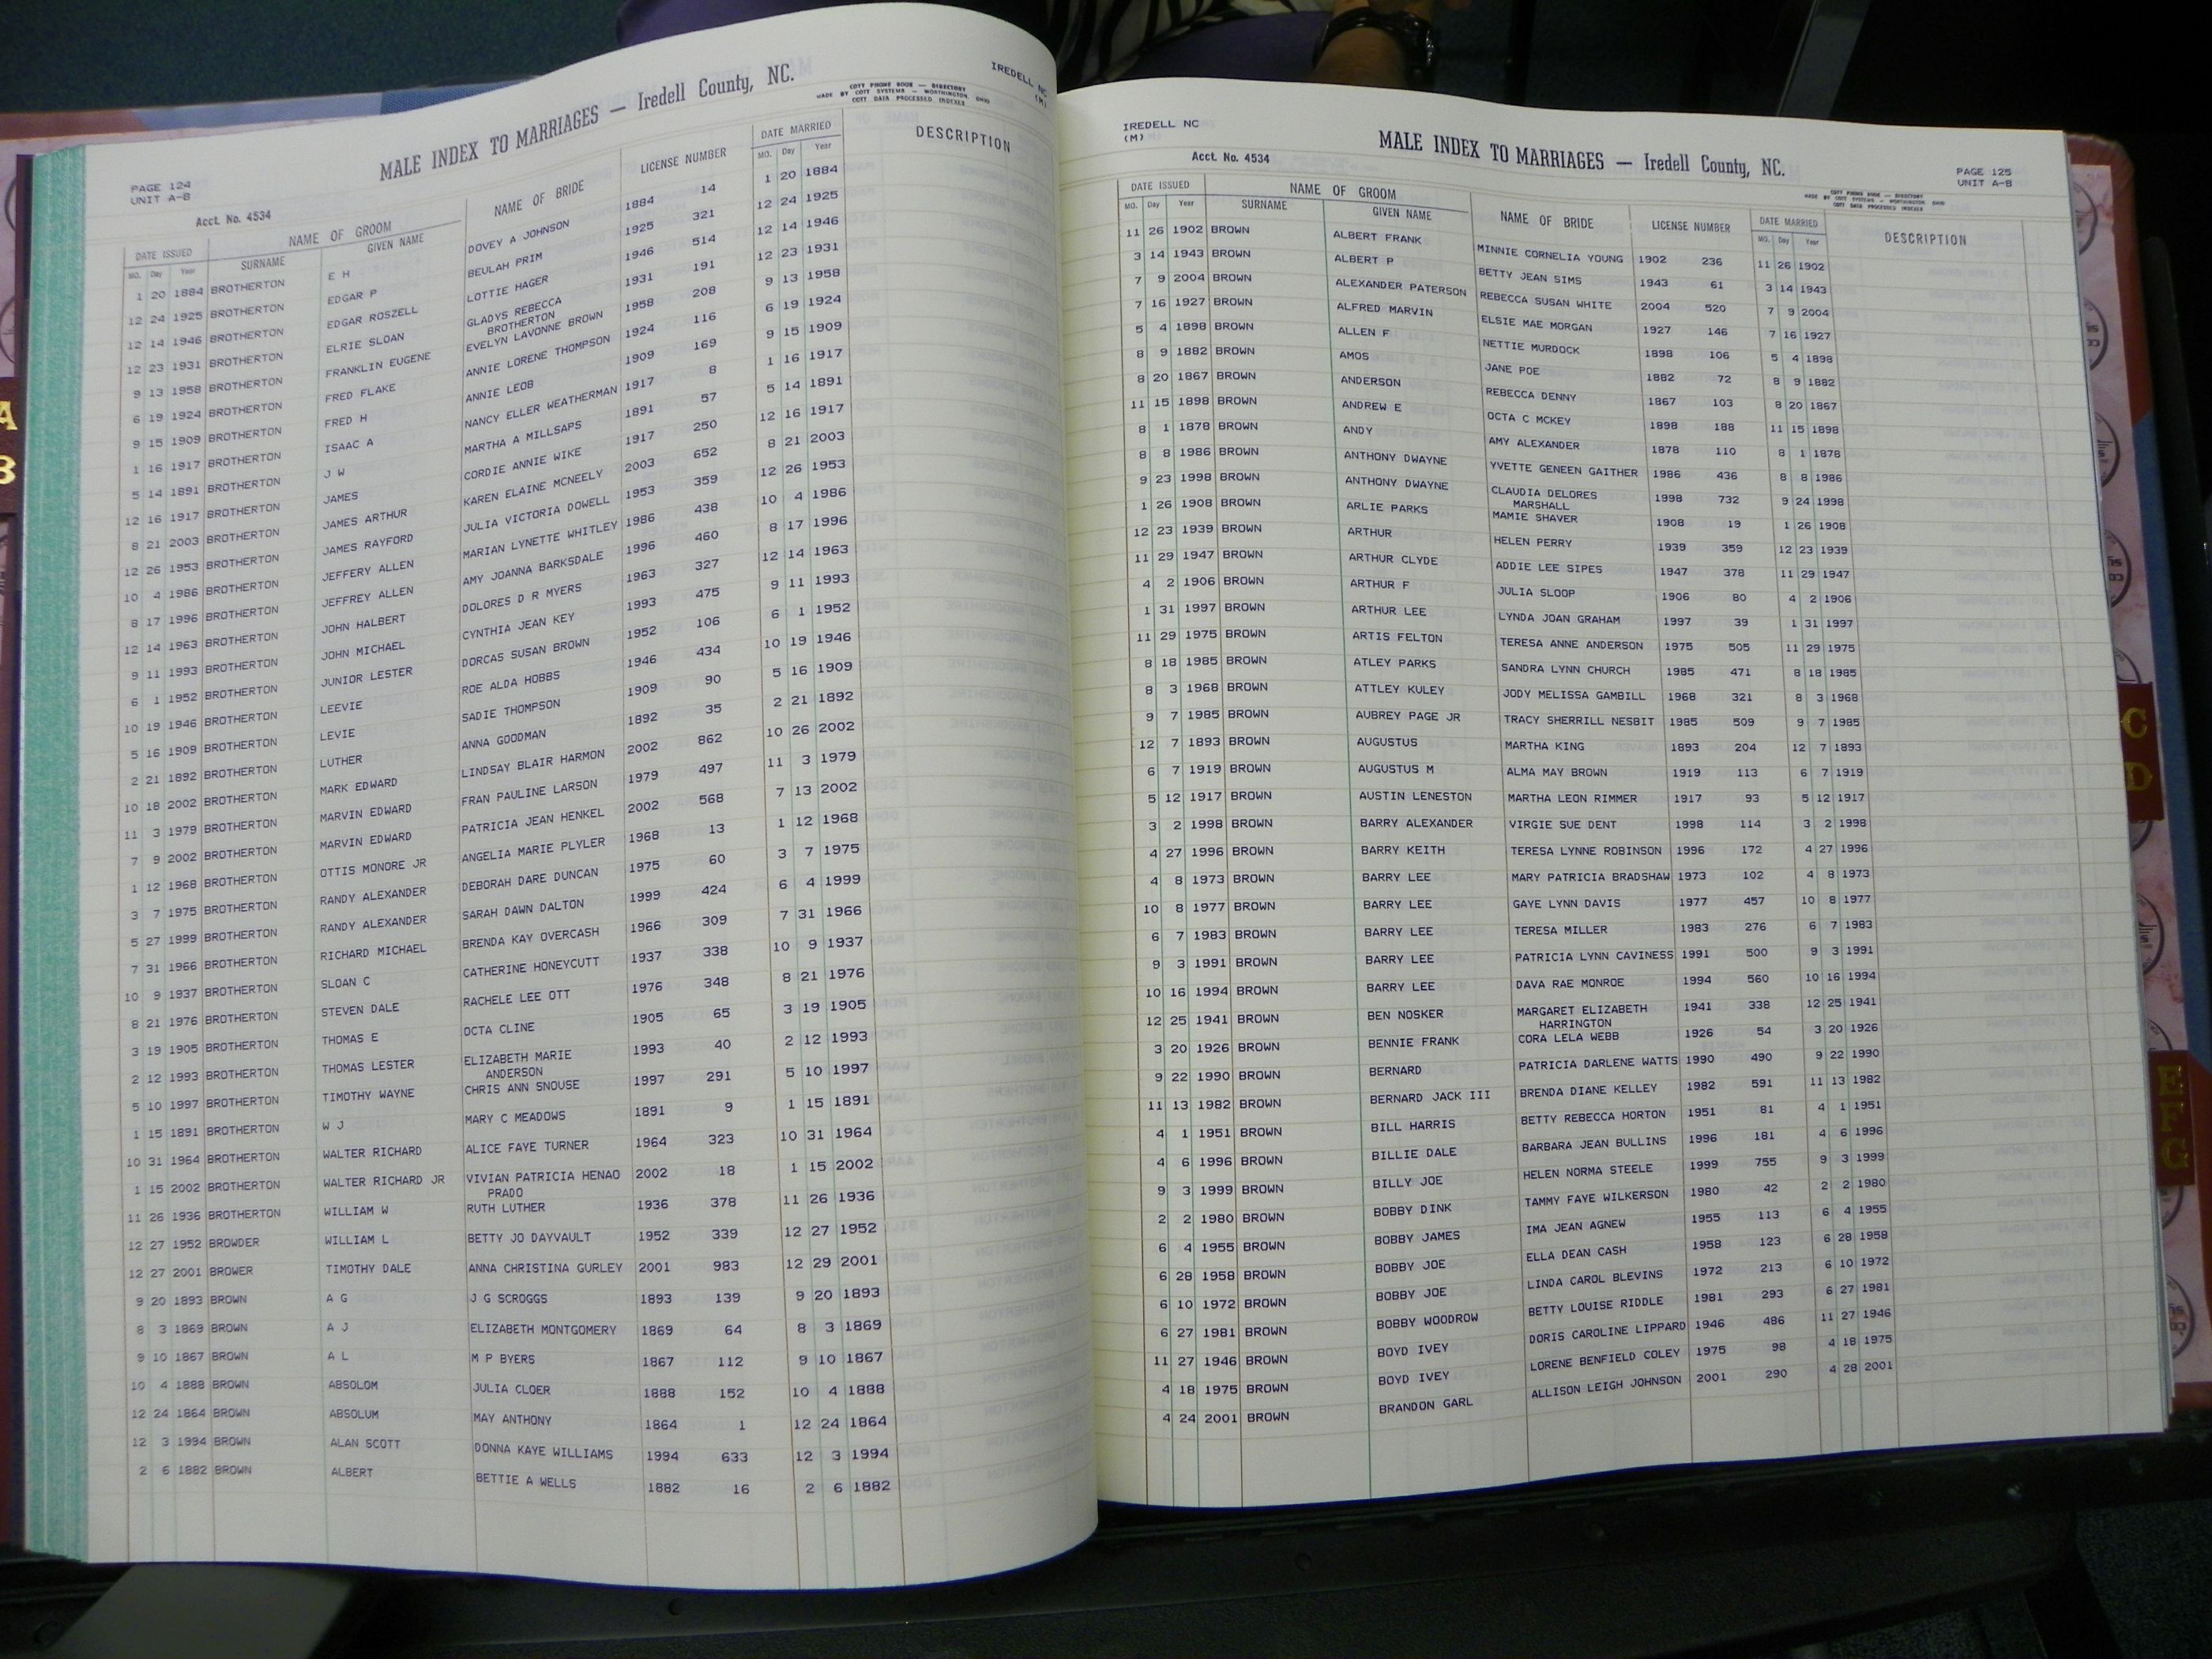 MALE INDEX TO MARRIAGES — Iredell County, NC.
IREDELL NC
(M)
COTT PHONE BOOK — DIRECTORY
MADE BY COTT SYSTEMS — WORTHINGTON, OHIO
COTT DATA PROCESSED INDEXES
PAGE 124
UNIT A-B
Acct. No. 4534
DATE ISSUED NAME OF GROOM NAME OF BRIDE LICENSE NUMBER DATE MARRIED DESCRIPTION
MO. Day Year SURNAME GIVEN NAME MO. Day Year
1 20 1884 BROTHERTON E H DOVEY A JOHNSON 1884 14 1 20 1884
12 24 1925 BROTHERTON EDGAR P BEULAH PRIM 1925 321 12 24 1925
12 14 1946 BROTHERTON EDGAR ROSZELL LOTTIE HAGER 1946 514 12 14 1946
12 23 1931 BROTHERTON ELRIE SLOAN GLADYS REBECCA 1931 191 12 23 1931
BROTHERTON
9 13 1958 BROTHERTON FRANKLIN EUGENE EVELYN LAVONNE BROWN 1958 208 9 13 1958
6 19 1924 BROTHERTON FRED FLAKE ANNIE LORENE THOMPSON 1924 116 6 19 1924
9 15 1909 BROTHERTON FRED H ANNIE LEOB 1909 169 9 15 1909
1 16 1917 BROTHERTON ISAAC A NANCY ELLER WEATHERMAN 1917 8 1 16 1917
5 14 1891 BROTHERTON J W MARTHA A MILLSAPS 1891 57 5 14 1891
12 16 1917 BROTHERTON JAMES CORDIE ANNIE WIKE 1917 250 12 16 1917
8 21 2003 BROTHERTON JAMES ARTHUR KAREN ELAINE MCNEELY 2003 652 8 21 2003
12 26 1953 BROTHERTON JAMES RAYFORD JULIA VICTORIA DOWELL 1953 359 12 26 1953
10 4 1986 BROTHERTON JEFFERY ALLEN MARIAN LYNETTE WHITLEY 1986 438 10 4 1986
8 17 1996 BROTHERTON JEFFREY ALLEN AMY JOANNA BARKSDALE 1996 460 8 17 1996
12 14 1963 BROTHERTON JOHN HALBERT DOLORES D R MYERS 1963 327 12 14 1963
9 11 1993 BROTHERTON JOHN MICHAEL CYNTHIA JEAN KEY 1993 475 9 11 1993
6 1 1952 BROTHERTON JUNIOR LESTER DORCAS SUSAN BROWN 1952 106 6 1 1952
10 19 1946 BROTHERTON LEEVIE ROE ALDA HOBBS 1946 434 10 19 1946
5 16 1909 BROTHERTON LEVIE SADIE THOMPSON 1909 90 5 16 1909
2 21 1892 BROTHERTON LUTHER ANNA GOODMAN 1892 35 2 21 1892
10 18 2002 BROTHERTON MARK EDWARD LINDSAY BLAIR HARMON 2002 862 10 26 2002
11 3 1979 BROTHERTON MARVIN EDWARD FRAN PAULINE LARSON 1979 497 11 3 1979
7 9 2002 BROTHERTON MARVIN EDWARD PATRICIA JEAN HENKEL 2002 568 7 13 2002
1 12 1968 BROTHERTON OTTIS MONORE JR ANGELIA MARIE PLYLER 1968 13 1 12 1968
3 7 1975 BROTHERTON RANDY ALEXANDER DEBORAH DARE DUNCAN 1975 60 3 7 1975
5 27 1999 BROTHERTON RANDY ALEXANDER SARAH DAWN DALTON 1999 424 6 4 1999
7 31 1966 BROTHERTON RICHARD MICHAEL BRENDA KAY OVERCASH 1966 309 7 31 1966
10 9 1937 BROTHERTON SLOAN C CATHERINE HONEYCUTT 1937 338 10 9 1937
8 21 1976 BROTHERTON STEVEN DALE RACHELE LEE OTT 1976 348 8 21 1976
3 19 1905 BROTHERTON THOMAS E OCTA CLINE 1905 65 3 19 1905
2 12 1993 BROTHERTON THOMAS LESTER ELIZABETH MARIE 1993 40 2 12 1993
ANDERSON
5 10 1997 BROTHERTON TIMOTHY WAYNE CHRIS ANN SNOUSE 1997 291 5 10 1997
1 15 1891 BROTHERTON W J MARY C MEADOWS 1891 9 1 15 1891
10 31 1964 BROTHERTON WALTER RICHARD ALICE FAYE TURNER 1964 323 10 31 1964
1 15 2002 BROTHERTON WALTER RICHARD JR VIVIAN PATRICIA HENAO 2002 18 1 15 2002
PRADO
11 26 1936 BROTHERTON WILLIAM W RUTH LUTHER 1936 378 11 26 1936
12 27 1952 BROWDER WILLIAM L BETTY JO DAYVAULT 1952 339 12 27 1952
12 27 2001 BROWER TIMOTHY DALE ANNA CHRISTINA GURLEY 2001 983 12 29 2001
9 20 1893 BROWN A G J G SCROGGS 1893 139 9 20 1893
8 3 1869 BROWN A J ELIZABETH MONTGOMERY 1869 64 8 3 1869
9 10 1867 BROWN A L M P BYERS 1867 112 9 10 1867
10 4 1888 BROWN ABSOLOM JULIA CLOER 1888 152 10 4 1888
12 24 1864 BROWN ABSOLUM MAY ANTHONY 1864 1 12 24 1864
12 3 1994 BROWN ALAN SCOTT DONNA KAYE WILLIAMS 1994 633 12 3 1994
2 6 1882 BROWN ALBERT BETTIE A WELLS 1882 16 2 6 1882
IREDELL NC
(M)
MALE INDEX TO MARRIAGES — Iredell County, NC.
Acct. No. 4534
PAGE 125
UNIT A-B
COTT PHONE BOOK — DIRECTORY
MADE BY COTT SYSTEMS — WORTHINGTON, OHIO
COTT DATA PROCESSED INDEXES
DATE ISSUED NAME OF GROOM NAME OF BRIDE LICENSE NUMBER DATE MARRIED DESCRIPTION
MO. Day Year SURNAME GIVEN NAME MO. Day Year
11 26 1902 BROWN ALBERT FRANK MINNIE CORNELIA YOUNG 1902 236 11 26 1902
3 14 1943 BROWN ALBERT P BETTY JEAN SIMS 1943 61 3 14 1943
7 9 2004 BROWN ALEXANDER PATERSON REBECCA SUSAN WHITE 2004 520 7 9 2004
7 16 1927 BROWN ALFRED MARVIN ELSIE MAE MORGAN 1927 146 7 16 1927
5 4 1898 BROWN ALLEN F NETTIE MURDOCK 1898 106 5 4 1898
8 9 1882 BROWN AMOS JANE POE 1882 72 8 9 1882
8 20 1867 BROWN ANDERSON REBECCA DENNY 1867 103 8 20 1867
11 15 1898 BROWN ANDREW E OCTA C MCKEY 1898 188 11 15 1898
8 1 1878 BROWN ANDY AMY ALEXANDER 1878 110 8 1 1878
8 8 1986 BROWN ANTHONY DWAYNE YVETTE GENEEN GAITHER 1986 436 8 8 1986
9 23 1998 BROWN ANTHONY DWAYNE CLAUDIA DELORES 1998 732 9 24 1998
MARSHALL
1 26 1908 BROWN ARLIE PARKS MAMIE SHAVER 1908 19 1 26 1908
12 23 1939 BROWN ARTHUR HELEN PERRY 1939 359 12 23 1939
11 29 1947 BROWN ARTHUR CLYDE ADDIE LEE SIPES 1947 378 11 29 1947
4 2 1906 BROWN ARTHUR F JULIA SLOOP 1906 80 4 2 1906
1 31 1997 BROWN ARTHUR LEE LYNDA JOAN GRAHAM 1997 39 1 31 1997
11 29 1975 BROWN ARTIS FELTON TERESA ANNE ANDERSON 1975 505 11 29 1975
8 18 1985 BROWN ATLEY PARKS SANDRA LYNN CHURCH 1985 471 8 18 1985
8 3 1968 BROWN ATTLEY KULEY JODY MELISSA GAMBILL 1968 321 8 3 1968
9 7 1985 BROWN AUBREY PAGE JR TRACY SHERRILL NESBIT 1985 509 9 7 1985
12 7 1893 BROWN AUGUSTUS MARTHA KING 1893 204 12 7 1893
6 7 1919 BROWN AUGUSTUS M ALMA MAY BROWN 1919 113 6 7 1919
5 12 1917 BROWN AUSTIN LENESTON MARTHA LEON RIMMER 1917 93 5 12 1917
3 2 1998 BROWN BARRY ALEXANDER VIRGIE SUE DENT 1998 114 3 2 1998
4 27 1996 BROWN BARRY KEITH TERESA LYNNE ROBINSON 1996 172 4 27 1996
4 8 1973 BROWN BARRY LEE MARY PATRICIA BRADSHAW 1973 102 4 8 1973
10 8 1977 BROWN BARRY LEE GAYE LYNN DAVIS 1977 457 10 8 1977
6 7 1983 BROWN BARRY LEE TERESA MILLER 1983 276 6 7 1983
9 3 1991 BROWN BARRY LEE PATRICIA LYNN CAVINESS 1991 500 9 3 1991
10 16 1994 BROWN BARRY LEE DAVA RAE MONROE 1994 560 10 16 1994
12 25 1941 BROWN BEN NOSKER MARGARET ELIZABETH 1941 338 12 25 1941
HARRINGTON
3 20 1926 BROWN BENNIE FRANK CORA LELA WEBB 1926 54 3 20 1926
9 22 1990 BROWN BERNARD PATRICIA DARLENE WATTS 1990 490 9 22 1990
11 13 1982 BROWN BERNARD JACK III BRENDA DIANE KELLEY 1982 591 11 13 1982
4 1 1951 BROWN BILL HARRIS BETTY REBECCA HORTON 1951 81 4 1 1951
4 6 1996 BROWN BILLIE DALE BARBARA JEAN BULLINS 1996 181 4 6 1996
9 3 1999 BROWN BILLY JOE HELEN NORMA STEELE 1999 755 9 3 1999
2 2 1980 BROWN BOBBY DINK TAMMY FAYE WILKERSON 1980 42 2 2 1980
6 4 1955 BROWN BOBBY JAMES IMA JEAN AGNEW 1955 113 6 4 1955
6 28 1958 BROWN BOBBY JOE ELLA DEAN CASH 1958 123 6 28 1958
6 10 1972 BROWN BOBBY JOE LINDA CAROL BLEVINS 1972 213 6 10 1972
6 27 1981 BROWN BOBBY WOODROW BETTY LOUISE RIDDLE 1981 293 6 27 1981
11 27 1946 BROWN BOYD IVEY DORIS CAROLINE LIPPARD 1946 486 11 27 1946
4 18 1975 BROWN BOYD IVEY LORENE BENFIELD COLEY 1975 98 4 18 1975
4 24 2001 BROWN BRANDON GARL ALLISON LEIGH JOHNSON 2001 290 4 28 2001
A
B
C
D
E
F
G